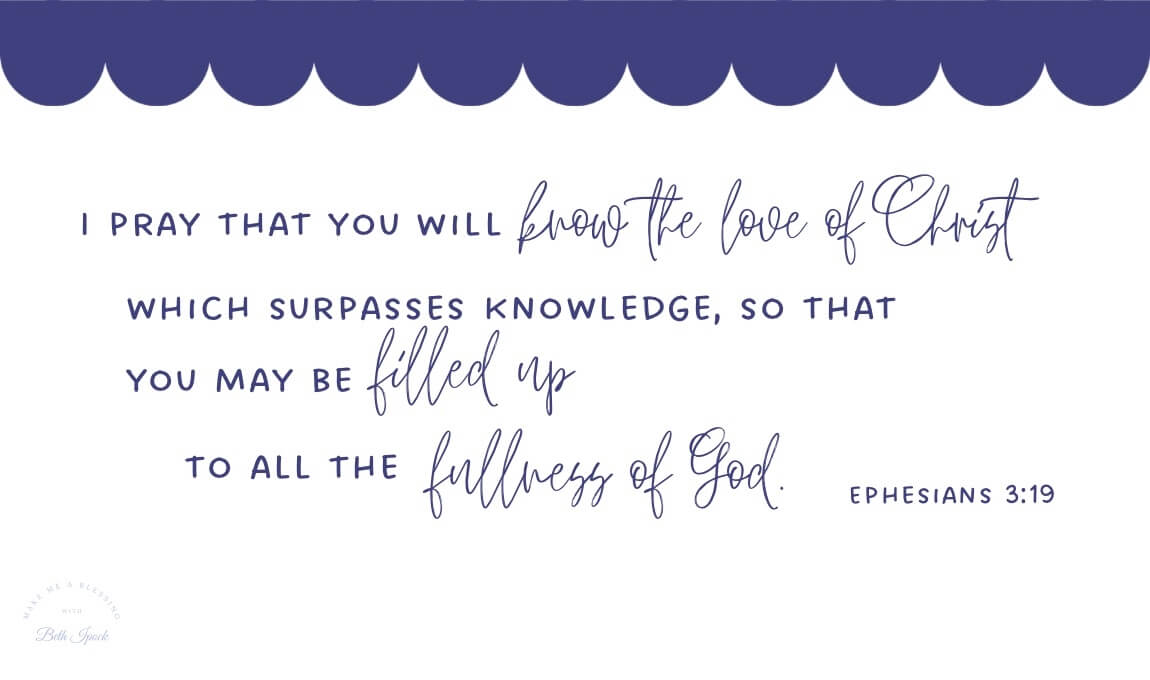 I PRAY THAT YOU WILL know the love of Christ
WHICH SURPASSES KNOWLEDGE, SO THAT
YOU MAY BE filled up
TO ALL THE fullness of God.
EPHESIANS 3:19
MAKE ME A BLESSING
WITH
Beth Ipock